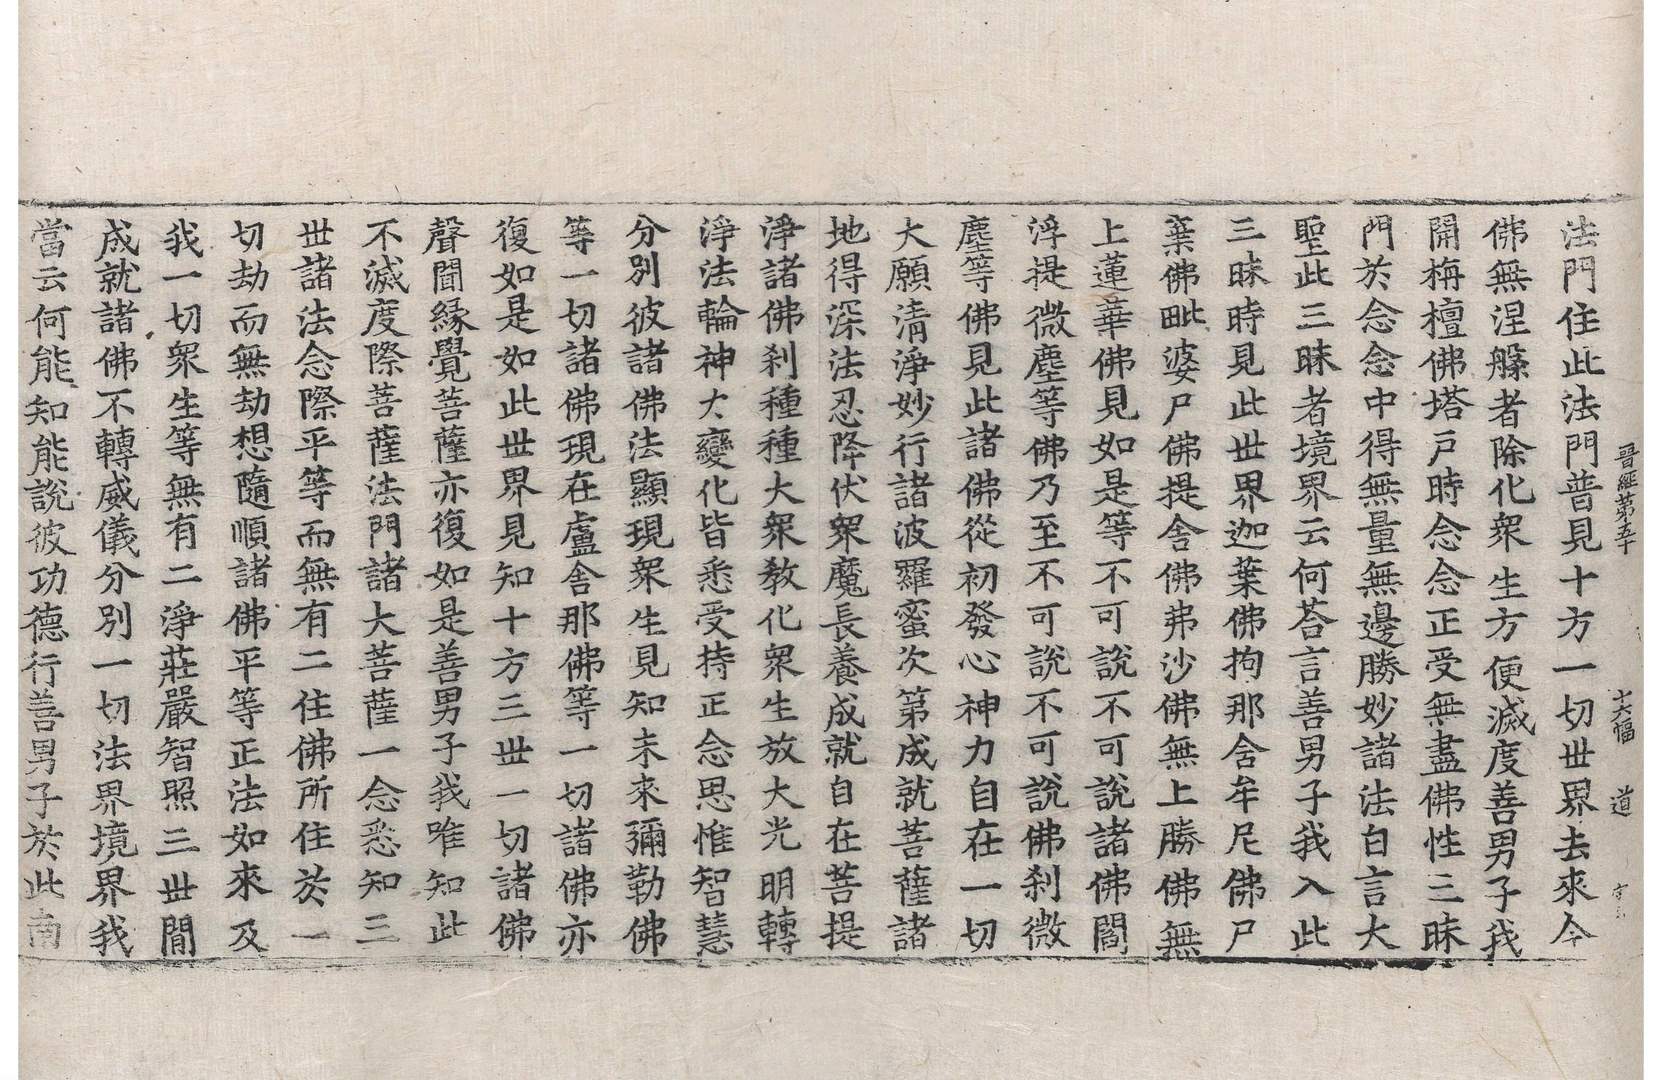 晉經第五十 十六幅 道
法門住此法門普見十方一切世界去來今
佛無涅槃者除化衆生方便滅度善男子我
開栴檀佛塔戸時念念正受無盡佛性三昧
門於念念中得無量無邊勝妙諸法白言大
聖此三昧者境界云何荅言善男子我入此
三昧時見此世界迦葉佛拘那舍牟尼佛尸
棄佛毗婆尸佛提舍佛弗沙佛無上勝佛無
上蓮華佛見如是等不可說不可說諸佛閻
浮提微塵等佛乃至不可說不可說佛刹微
塵等佛見此諸佛從初發心神力自在一切
大願清淨妙行諸波羅蜜次第成就菩薩諸
地得深法忍降伏衆魔長養成就自在菩提
淨諸佛刹種種大衆教化衆生放大光明轉
淨法輪神大變化皆悉受持正念思惟智慧
分別彼諸佛法顯現衆生見知未來彌勒佛
等一切諸佛現在盧舍那佛等一切諸佛亦
復如是如此世界見知十方三世一切諸佛
聲聞緣覺菩薩亦復如是善男子我唯知此
不滅度際菩薩法門諸大菩薩一念悉知三
世諸法念際平等而無有二住佛所住於一
切劫而無劫想隨順諸佛平等正法如來及
我一切衆生等無有二淨莊嚴智照三世間
成就諸佛不轉威儀分別一切法界境界我
當云何能知能說彼功德行善男子於此南